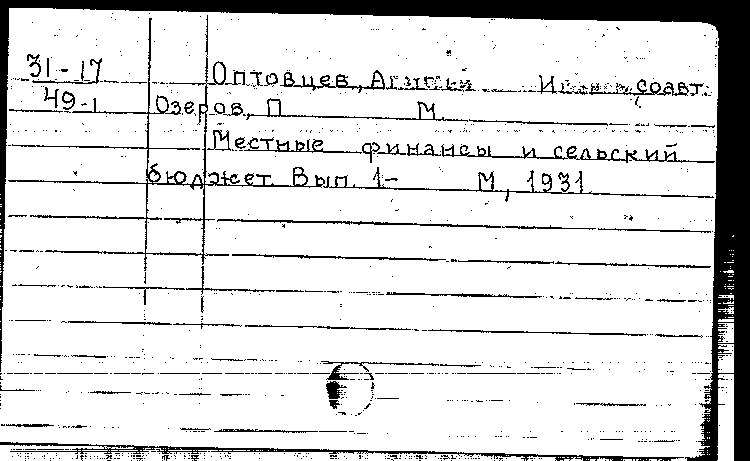 31-17 Оптовцев, соавт.
49-1 Озеров, П М
Местные финансы и сельский
бюджет. Вып. 1- М, 1931